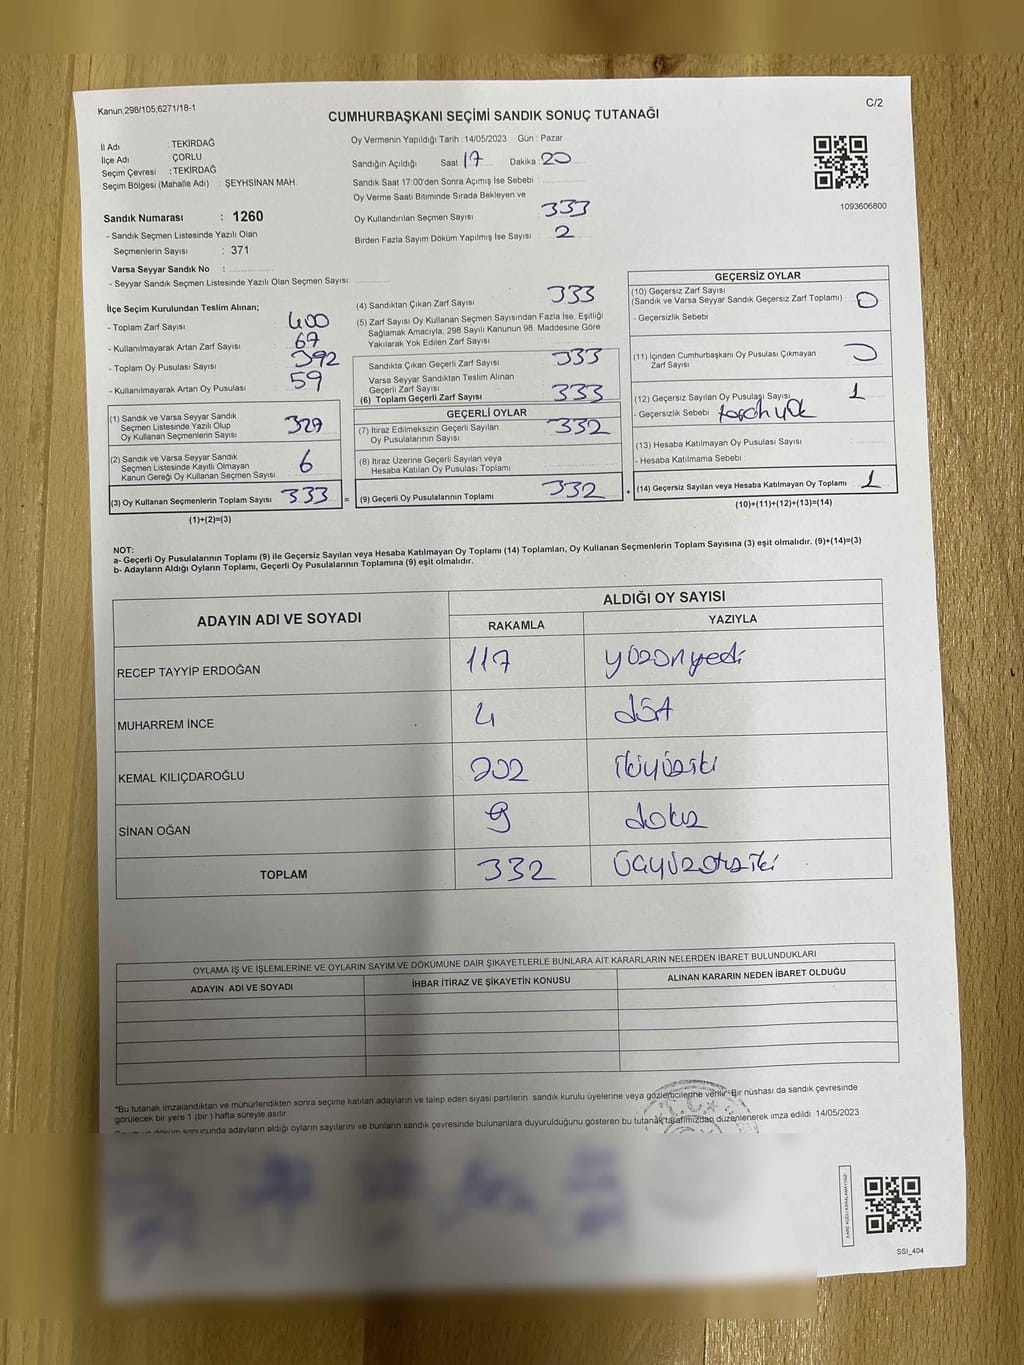 Kanun:298/105,6271/18-1
C/2
CUMHURBAŞKANI SEÇİMİ SANDIK SONUÇ TUTANAĞI
İl Adı : TEKİRDAĞ
İlçe Adı : ÇORLU
Seçim Çevresi : TEKİRDAĞ
Seçim Bölgesi (Mahalle Adı) : ŞEYHSİNAN MAH.
Sandık Numarası : 1260
- Sandık Seçmen Listesinde Yazılı Olan
Seçmenlerin Sayısı : 371
Varsa Seyyar Sandık No :
- Seyyar Sandık Seçmen Listesinde Yazılı Olan Seçmen Sayısı:
Oy Vermenin Yapıldığı Tarih : 14/05/2023 Gün : Pazar
Sandığın Açıldığı Saat 17 Dakika 20
Sandık Saat 17.00'den Sonra Açımış İse Sebebi :
Oy Verme Saati Bitiminde Sırada Bekleyen ve
Oy Kullandırılan Seçmen Sayısı : 333
Birden Fazla Sayım Döküm Yapılmış İse Sayısı : 2
1093606800
İlçe Seçim Kurulundan Teslim Alınan;
- Toplam Zarf Sayısı : 400
- Kullanılmayarak Artan Zarf Sayısı : 67
- Toplam Oy Pusulası Sayısı : 392
- Kullanılmayarak Artan Oy Pusulası : 59
(1) Sandık ve Varsa Seyyar Sandık
Seçmen Listesinde Yazılı Olup
Oy Kullanan Seçmenlerin Sayısı : 327
(2) Sandık ve Varsa Seyyar Sandık
Seçmen Listesinde Kayıtlı Olmayan
Kanun Gereği Oy Kullanan Seçmen Sayısı : 6
(3) Oy Kullanan Seçmenlerin Toplam Sayısı : 333 =
(1)+(2)=(3)
(4) Sandıktan Çıkan Zarf Sayısı : 333
(5) Zarf Sayısı Oy Kullanan Seçmen Sayısından Fazla İse, Eşitliği
Sağlamak Amacıyla, 298 Sayılı Kanunun 98. Maddesine Göre
Yakılarak Yok Edilen Zarf Sayısı :
Sandıkta Çıkan Geçerli Zarf Sayısı : 333
Varsa Seyyar Sandıktan Teslim Alınan
Geçerli Zarf Sayısı
(6) Toplam Geçerli Zarf Sayısı : 333
GEÇERLİ OYLAR
(7) İtiraz Edilmeksizin Geçerli Sayılan
Oy Pusulalarının Sayısı : 332
(8) İtiraz Üzerine Geçerli Sayılan veya
Hesaba Katılan Oy Pusulası Toplamı :
(9) Geçerli Oy Pusulalarının Toplamı : 332 +
GEÇERSİZ OYLAR
(10) Geçersiz Zarf Sayısı
(Sandık ve Varsa Seyyar Sandık Geçersiz Zarf Toplamı) : 0
- Geçersizlik Sebebi :
(11) İçinden Cumhurbaşkanı Oy Pusulası Çıkmayan
Zarf Sayısı : 0
(12) Geçersiz Sayılan Oy Pusulası Sayısı : 1
- Geçersizlik Sebebi :
(13) Hesaba Katılmayan Oy Pusulası Sayısı :
- Hesaba Katılmama Sebebi :
(14) Geçersiz Sayılan veya Hesaba Katılmayan Oy Toplamı : 1
(10)+(11)+(12)+(13)=(14)
NOT:
a- Geçerli Oy Pusulalarının Toplamı (9) ile Geçersiz Sayılan veya Hesaba Katılmayan Oy Toplamı (14) Toplamları, Oy Kullanan Seçmenlerin Toplam Sayısına (3) eşit olmalıdır. (9)+(14)=(3)
b- Adayların Aldığı Oyların Toplamı, Geçerli Oy Pusulalarının Toplamına (9) eşit olmalıdır.
ADAYIN ADI VE SOYADI
ALDIĞI OY SAYISI
RAKAMLA YAZIYLA
RECEP TAYYİP ERDOĞAN 117 yüzonyedi
MUHARREM İNCE 4 dört
KEMAL KILIÇDAROĞLU 202 ikiyüziki
SİNAN OĞAN 9 dokuz
TOPLAM 332 üçyüzotuziki
OYLAMA İŞ VE İŞLEMLERİNE VE OYLARIN SAYIM VE DÖKÜMÜNE DAİR ŞİKAYETLERLE BUNLARA AİT KARARLARIN NELERDEN İBARET BULUNDUKLARI
ADAYIN ADI VE SOYADI İHBAR İTİRAZ VE ŞİKAYETİN KONUSU ALINAN KARARIN NEDEN İBARET OLDUĞU
*Bu tutanak imzalandıktan ve mühürlendikten sonra seçime katılan adayların ve talep eden siyasi partilerin sandık kurulu üyelerine veya gözlemcilerine verilir. Bir nüshası da sandık çevresinde
görülecek bir yere 1 (bir ) hafta süreyle asılır.
döküm sonucunda adayların aldığı oyların sayılarını ve bunların sandık çevresinde bulunanlara duyurulduğunu gösteren bu tutanak tarafımızdan düzenlenerek imza edildi. 14/05/2023
SSİ_404